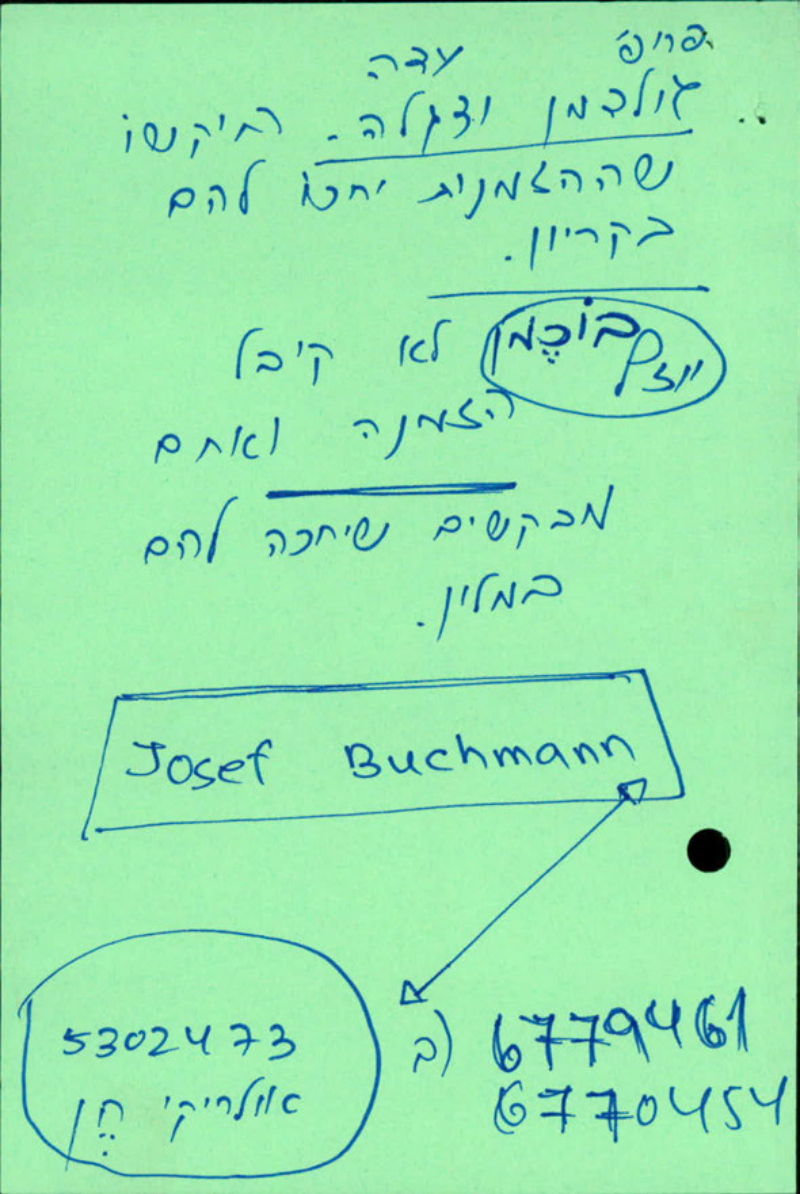 פרופ' עדה
גולבמן וצגלה. היקשו
שההזמנות יחכו להם
בקריון.
יוזף בוכמן לא קיבל
הזמנה ואתם
מבקשים שיחכה להם
במלון.
Josef Buchmann
ב) 6779461
6770454
5302473
אולריקי חן